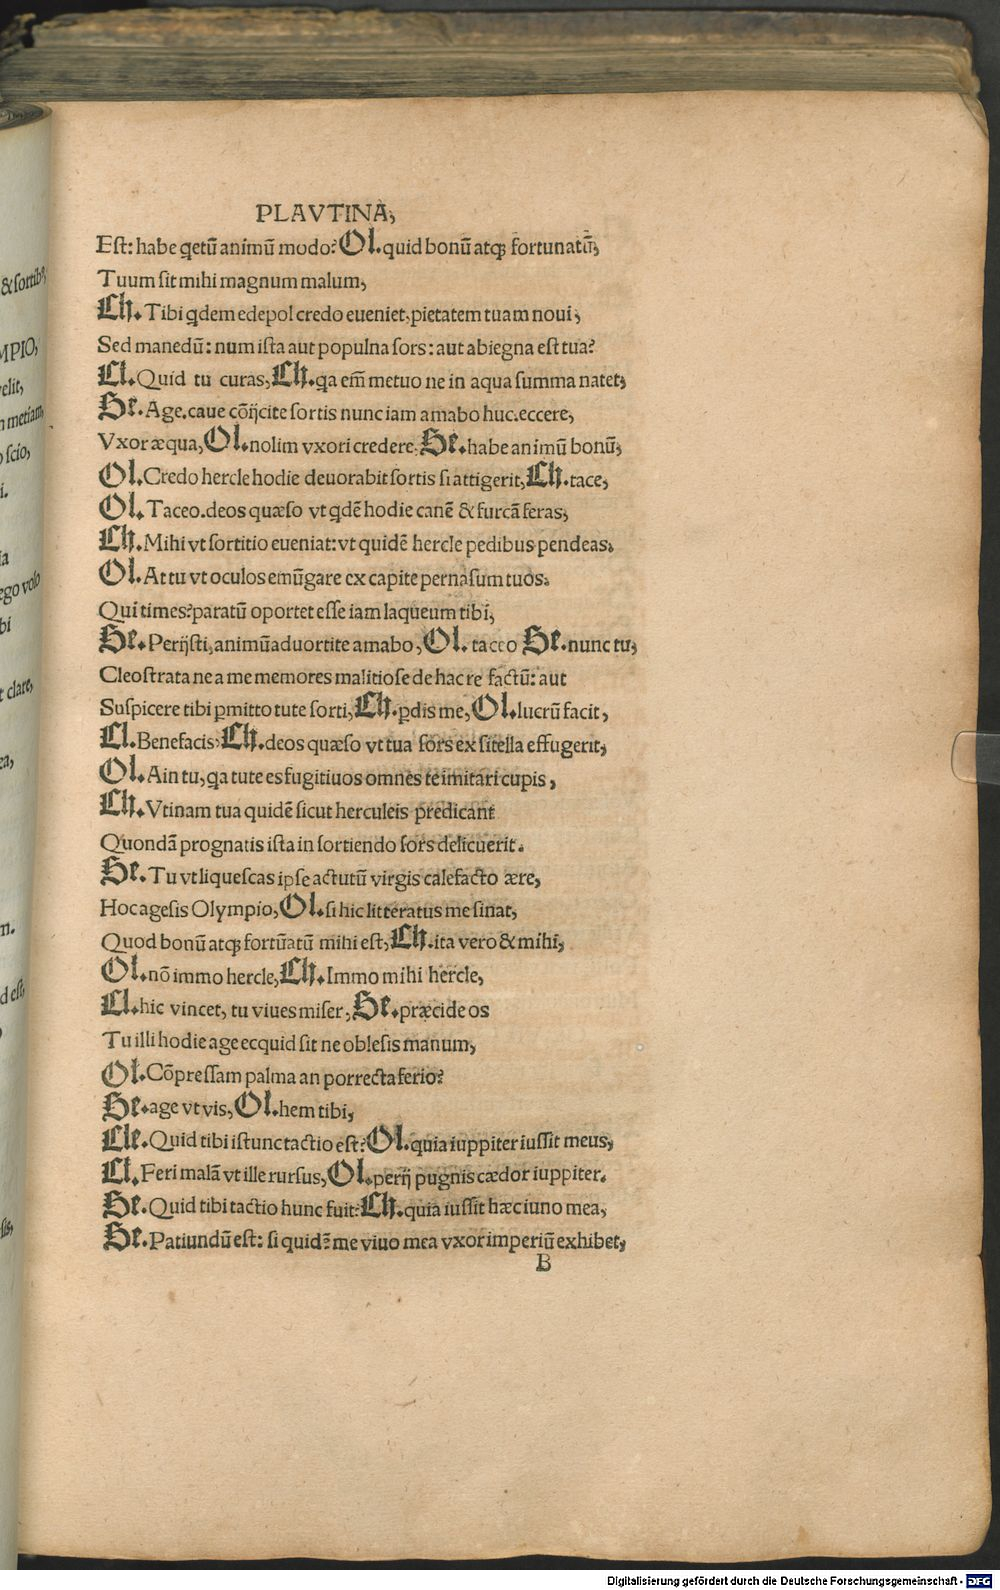 PLAVTINA,
Est: habe q̨etū animū modo? Ol. quid bonū atq; fortunatū,
Tuum sit mihi magnum malum,
Ch. Tibi q̨dem edepol credo eueniet, pietatem tuam noui,
Sed manedū: num ista aut populna sors: aut abiegna est tua?
Cl. Quid tu curas, Ch. q̨a em̄ metuo ne in aqua summa natet,
Se. Age. caue cōijcite sortis nunc iam amabo huc. eccere,
Vxor æqua, Ol. nolim vxori credere. Se. habe animū bonū,
Ol. Credo hercle hodie deuorabit sortis si attigerit, Ch. tace,
Ol. Taceo. deos quæso vt q̨dē hodie canē & furcā feras,
Ch. Mihi vt sortitio eueniat: vt quidē hercle pedibus pendeas.
Ol. At tu vt oculos emūgare ex capite per nasum tuos.
Qui times? paratū oportet esse iam laqueum tibi,
Se. Perijsti, animū aduortite amabo, Ol. taceo Se. nunc tu,
Cleostrata ne a me memores malitiose de hac re factū: aut
Suspicere tibi ꝑmitto tute sorti, Ch. ꝑdis me, Ol. lucrū facit,
Cl. Benefacis, Ch. deos quæso vt tua sors ex sitella effugerit,
Ol. Ain tu, q̨a tute es fugitiuos omnes te imitari cupis,
Ch. Vtinam tua quidē sicut herculeis predicant
Quondā prognatis ista in sortiendo sors delicuerit.
Se. Tu vt liquescas ipse actutū virgis calefacto ære,
Hoc agesis Olympio, Ol. si hic litteratus me sinat,
Quod bonū atq; fortūatū mihi est, Ch. ita vero & mihi,
Ol. nō immo hercle, Ch. Immo mihi hercle,
Cl. hic vincet, tu viues miser, Se. præcide os
Tu illi hodie age ecquid sit ne oblesis manum,
Ol. Cōpressam palma an porrecta ferio?
Se. age vt vis, Ol. hem tibi,
Cle. Quid tibi istunc tactio est? Ol. quia iuppiter iussit meus,
Cl. Feri malā vt ille rursus, Ol. perij pugnis cædor iuppiter.
Se. Quid tibi tactio hunc fuit: Ch. quia iussit hæc iuno mea,
Se. Patiundū est: si quid̄ me viuo mea vxor imperiū exhibet,
B
& sortib9
MPIO,
velit,
n metiam,
scio,
ego volo
bi
t clare,
ea,
m.
d est,
Digitalisierung gefördert durch die Deutsche Forschungsgemeinschaft - DFG